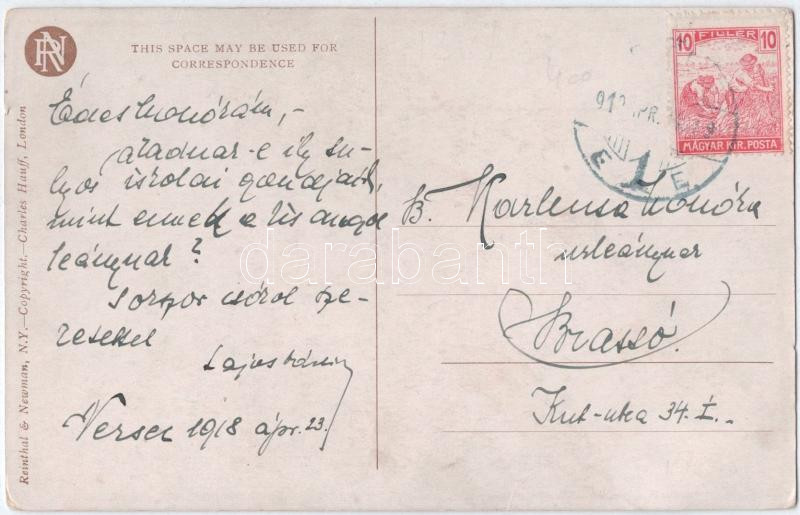 RN
THIS SPACE MAY BE USED FOR
CORRESPONDENCE
Reinthal & Newman, N.Y.—Copyright.—Charles Hauff, London
Édes Nonórám, -
akadnak-e ily sú-
lyos iskolai gondjaid,
mint ennek a kis angol
leánynak?
Sokszor csókol sze-
retettel
Lajos bácsi
Versec 1918 ápr. 23.
10 FILLÉR 10
MAGYAR KIR. POSTA
1
B. Nonóra
urleánynak
Brassó.
Kut-utca 34. I.
darabanth